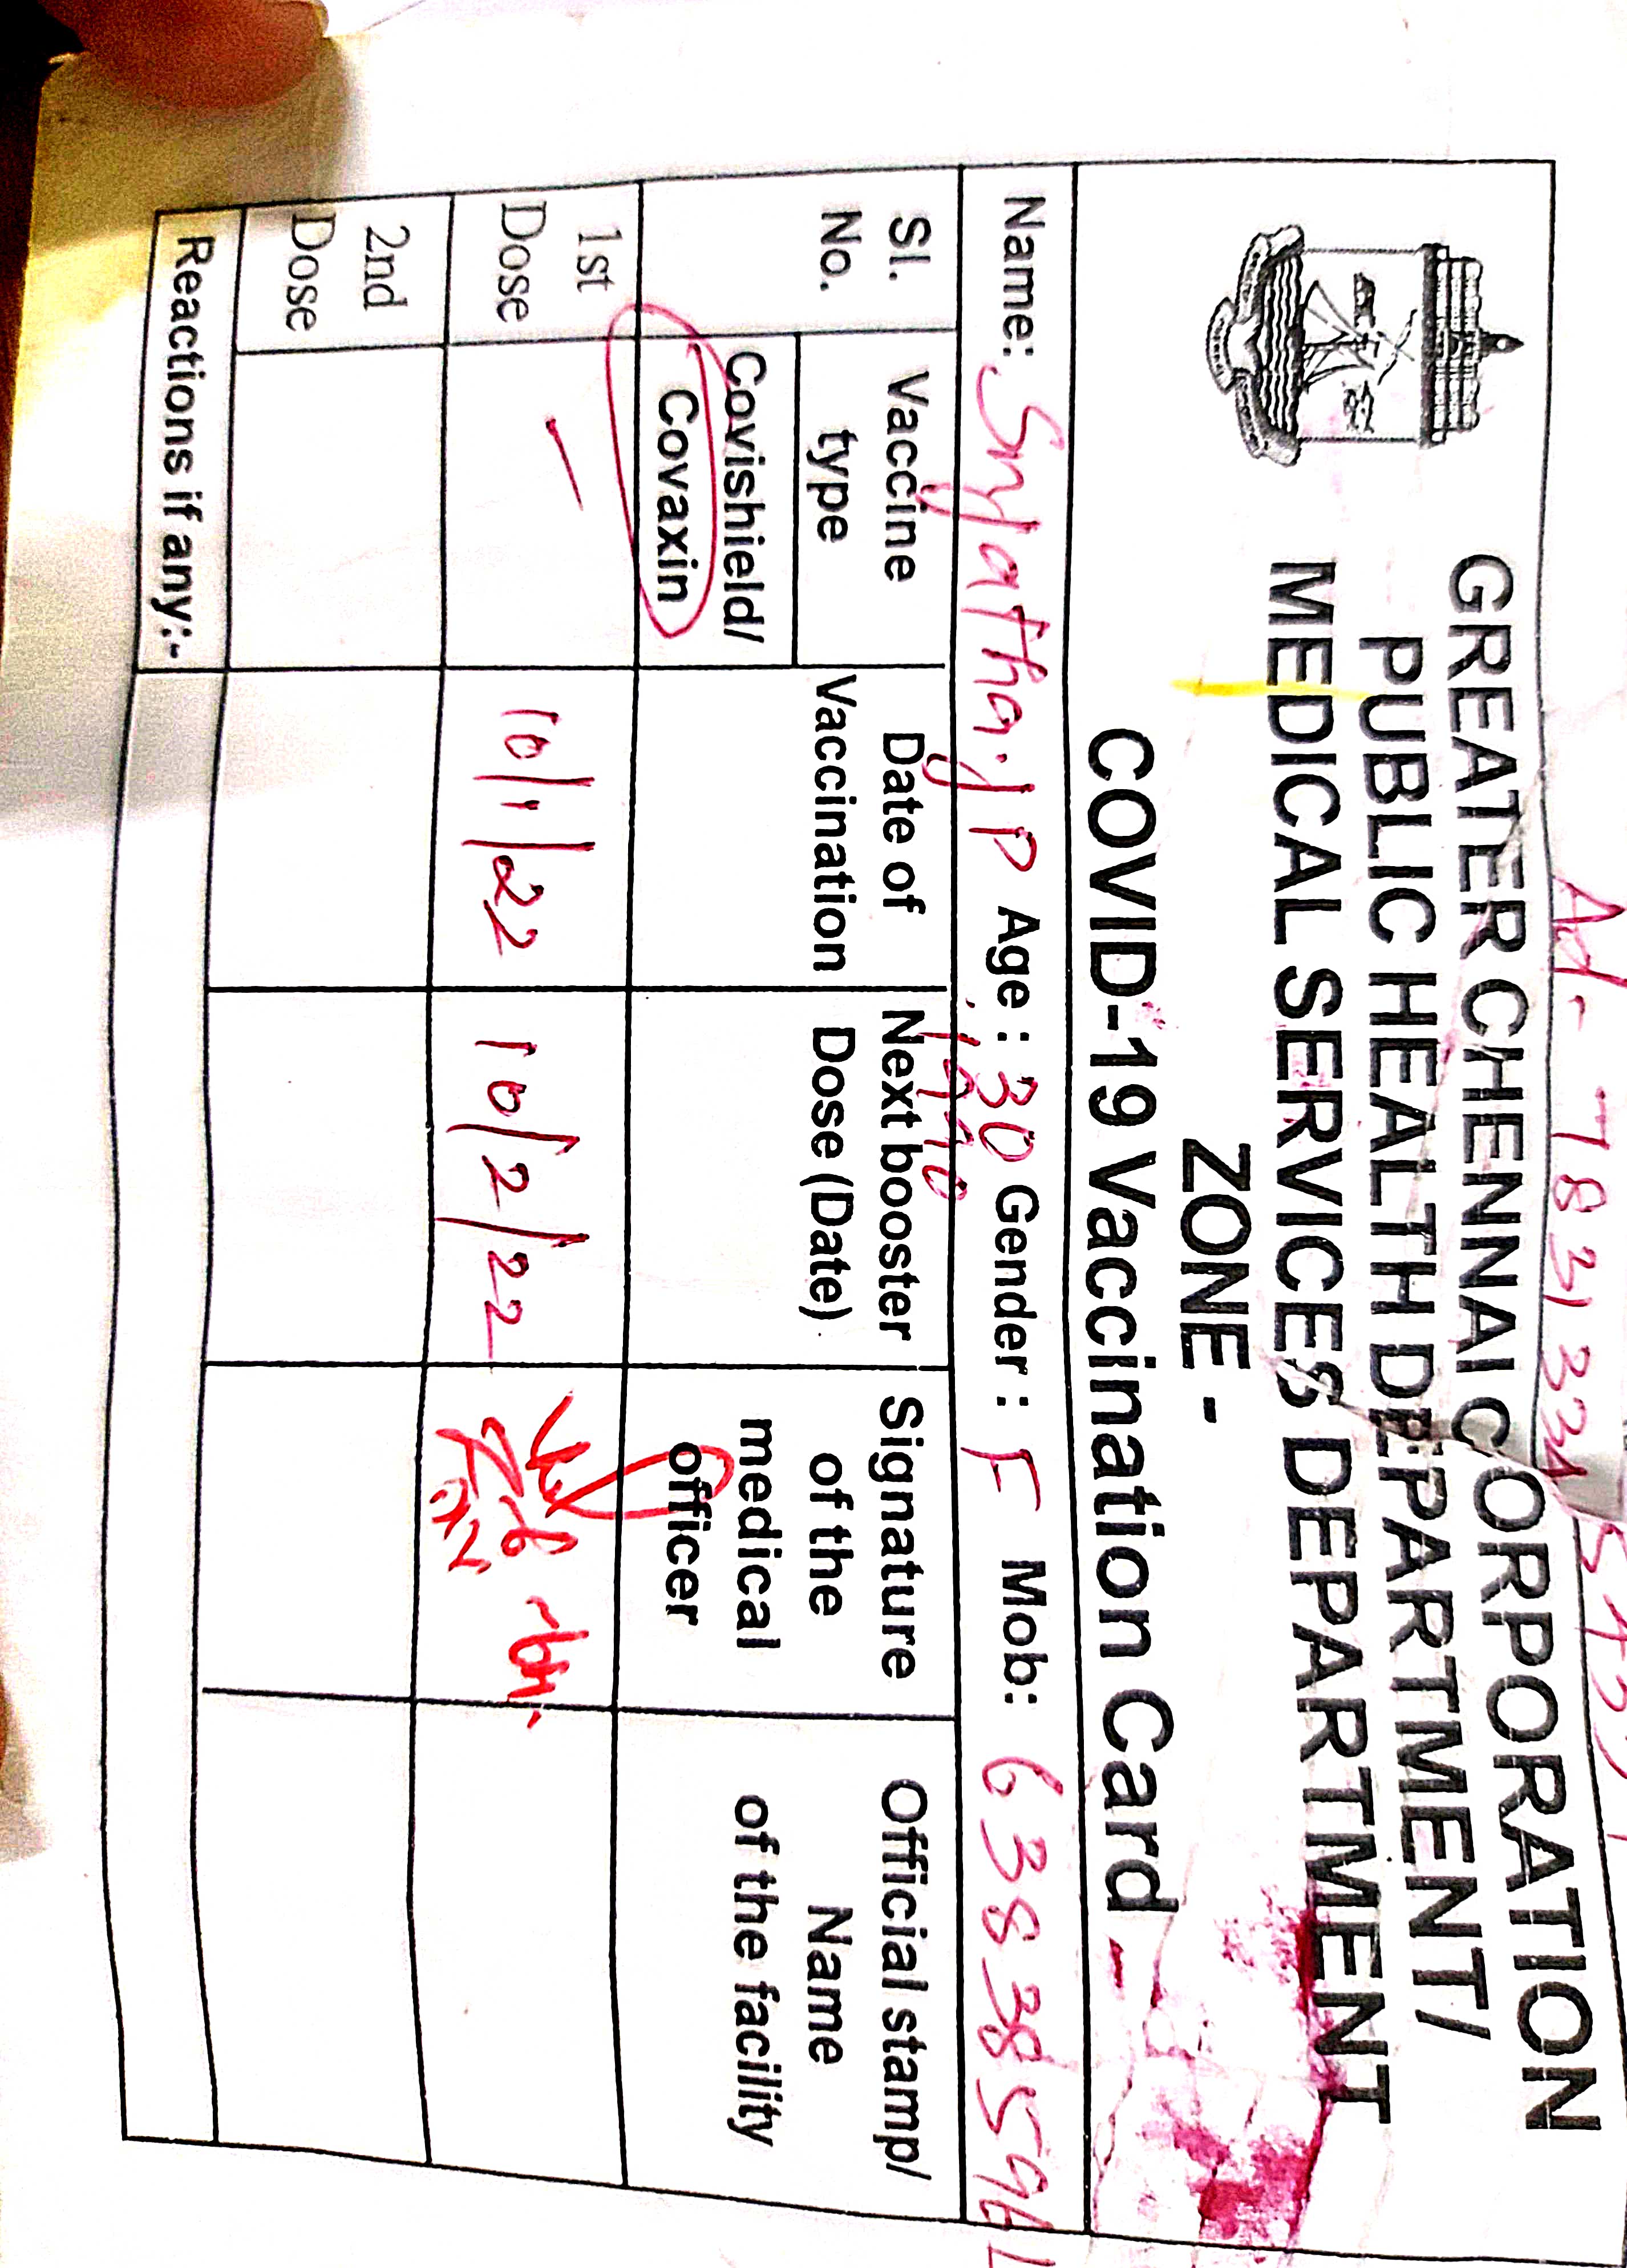 Ad- 7831334
GREATER CHENNAI CORPORATION
PUBLIC HEALTH DEPARTMENT/
MEDICAL SERVICES DEPARTMENT
ZONE -
COVID-19 Vaccination Card -
Name: Age : 30 Gender : F Mob: 63838559
1990
Sl. No. Vaccine type Date of Vaccination Next booster Dose (Date) Signature of the medical officer Official stamp/ Name of the facility
Covishield/ Covaxin
1st Dose 10/1/22 10/2/22
2nd Dose
Reactions if any:-